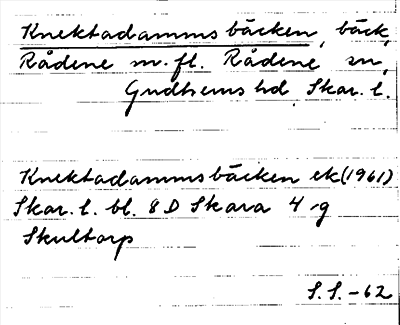 Knektadammsbäcken, bäck,
Rådene m. fl. Rådene sn,
Gudhems hd. Skar. l.
Knektadammsbäcken ek (1961)
Skar. l. bl. 8 D Skara 4 g
Skultorp
S.S. -62